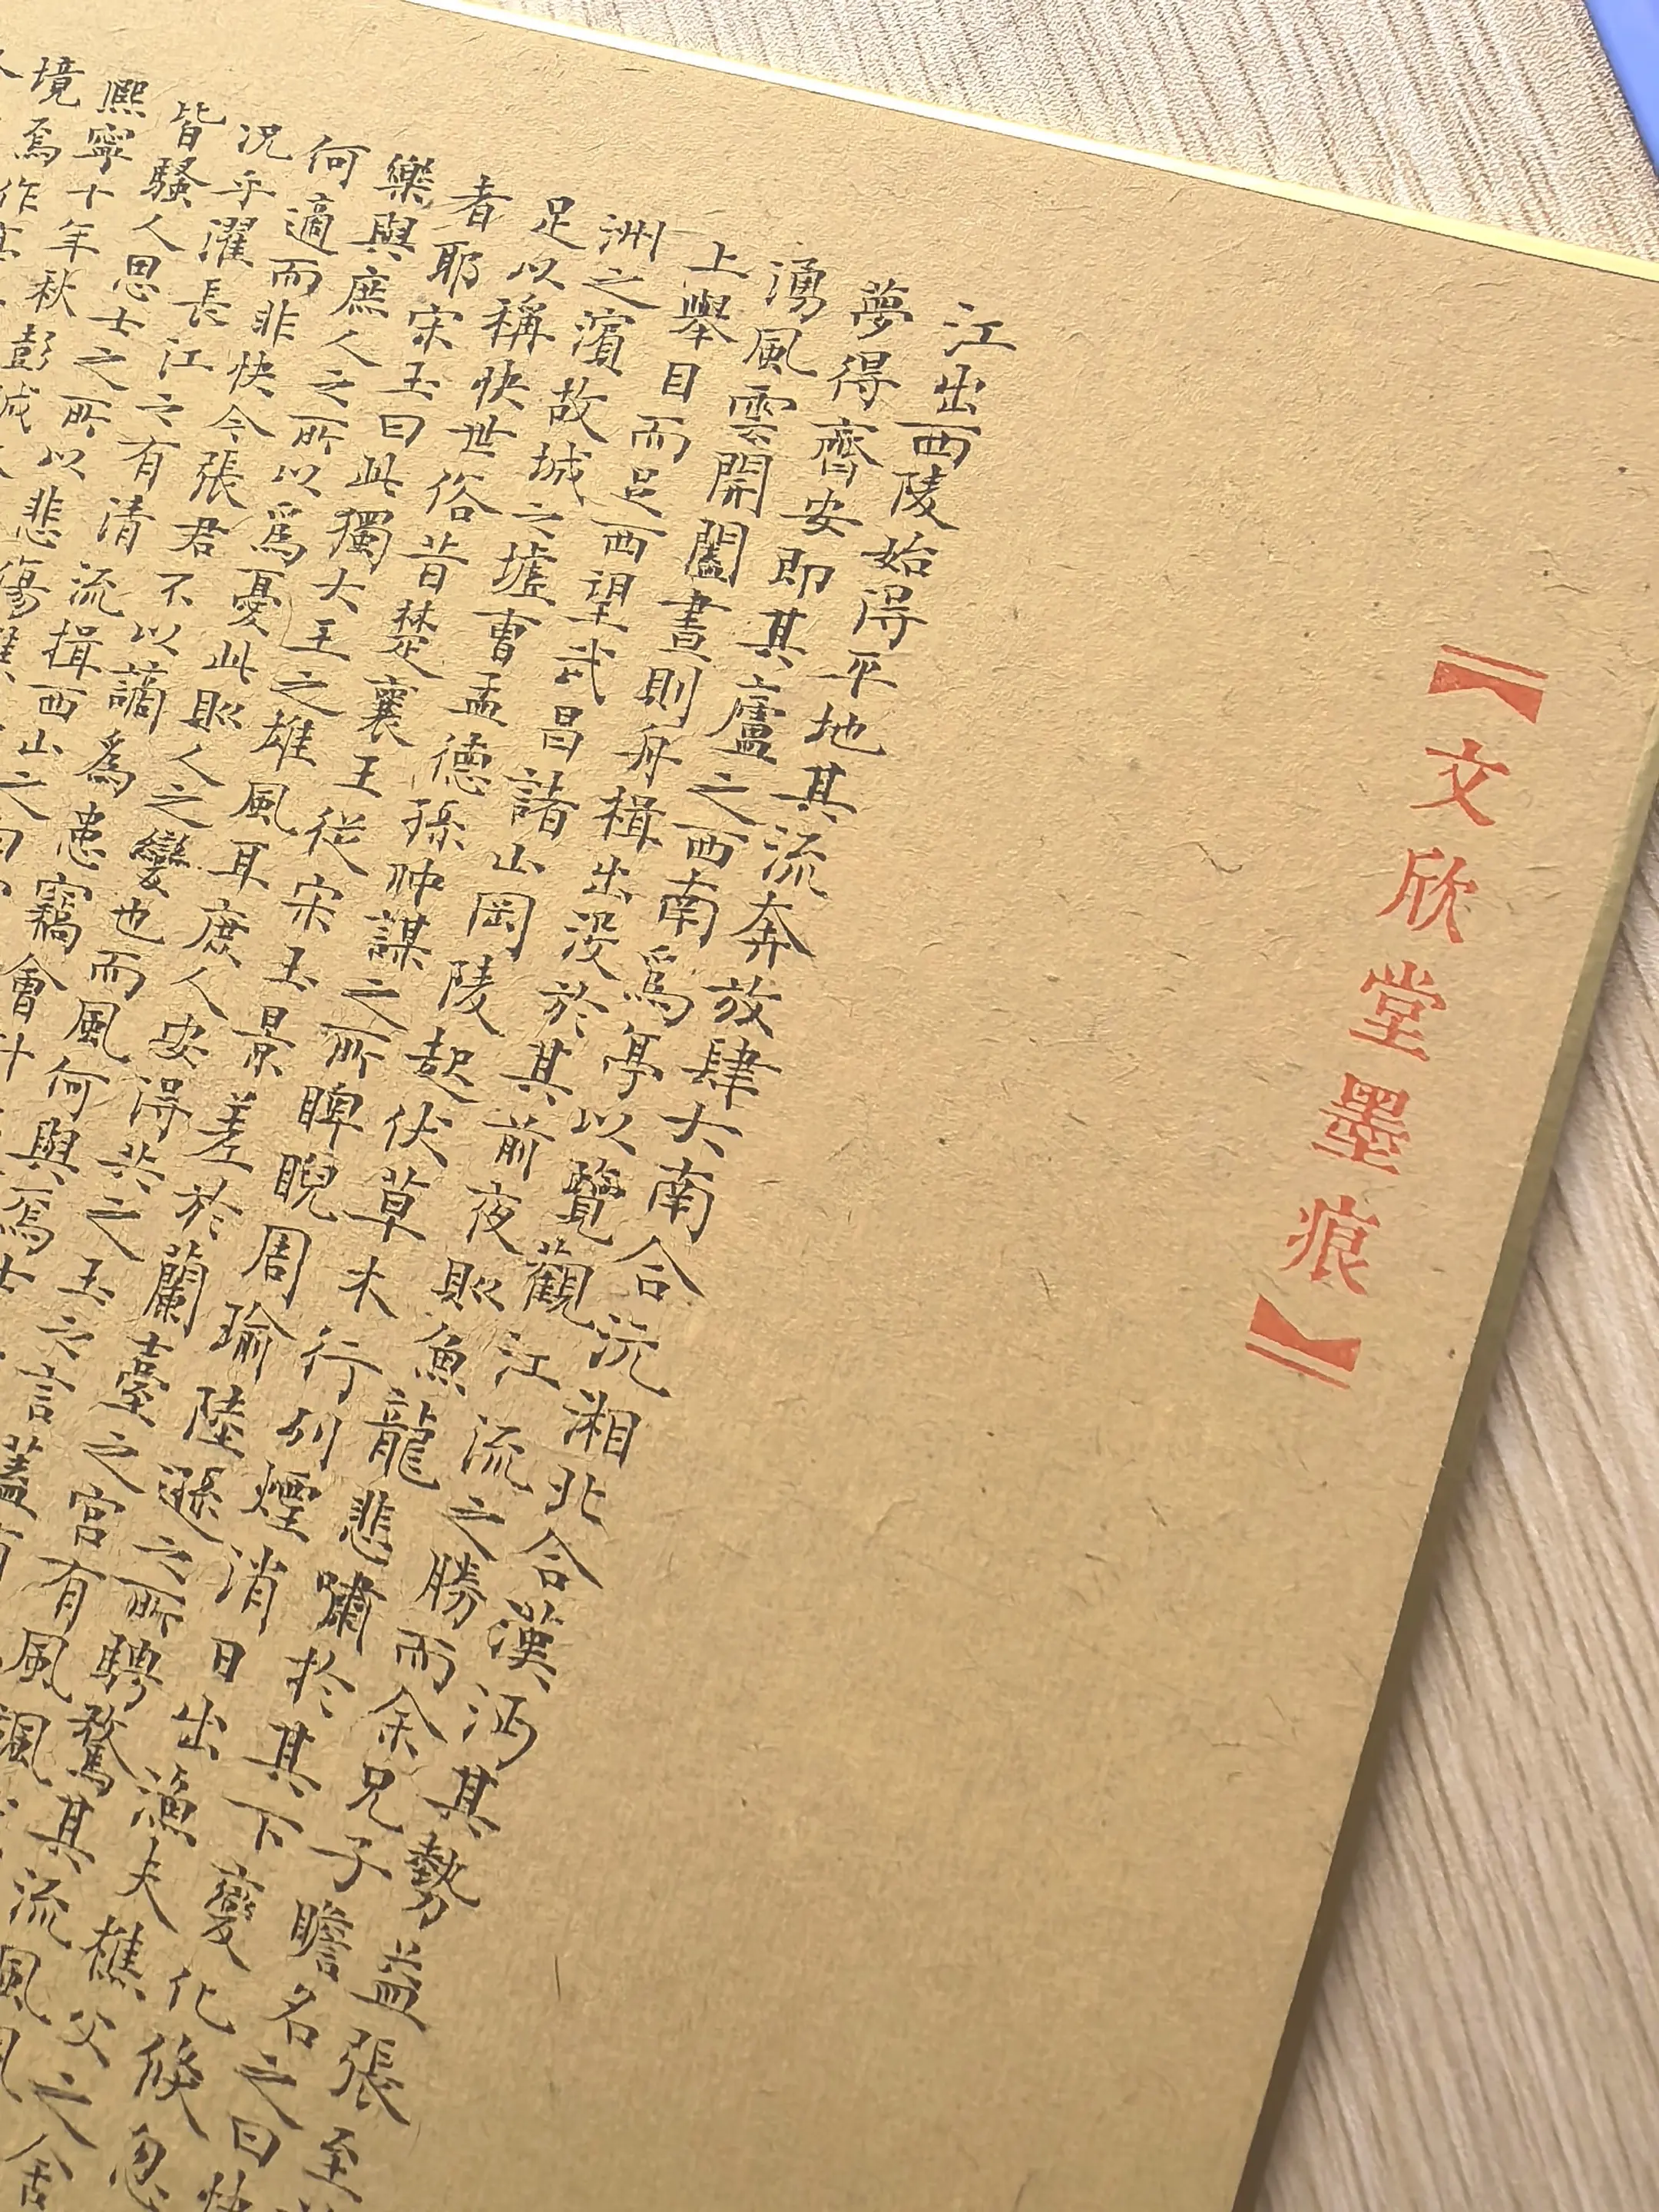 【文欣堂墨痕】
江出西陵始得平地其流奔放肆大南合沅湘北合漢沔其勢益張至
夢得齊安即其廬之西南爲亭以覽觀江流之勝而余兄子瞻名之曰快
湧風雲開闔晝則舟楫出没於其前夜則魚龍悲嘯於其下變化倏忽
上舉目而足西望武昌諸山岡陵起伏草木行列煙消日出漁夫樵父之舍
洲之濱故城之墟曹孟德孫仲謀之所睥睨周瑜陸遜之所騁騖其流風
足以稱快世俗昔楚襄王從宋玉景差於蘭臺之宮有風颯
者耶宋玉曰此獨大王之雄風耳庶人安得共之玉之言蓋有
樂與庶人之所以爲憂此則人之變也而風何與焉士
何適而非快今張君不以謫爲患竊會計
況乎濯長江之有清流揖西山之白
皆騷人思士之所以悲傷
熙寧十年秋彭城
境焉作